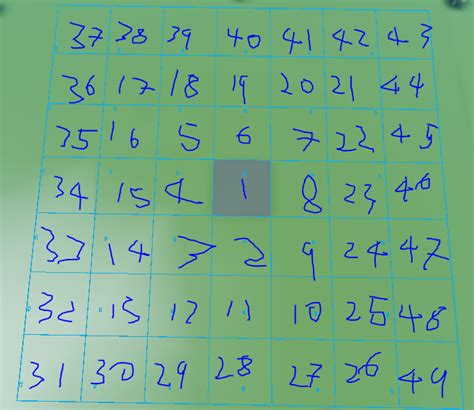 37 38 39 40 41 42 43
36 17 18 19 20 21 44
35 16 5 6 7 22 45
34 15 4 1 8 23 46
33 14 3 2 9 24 47
32 13 12 11 10 25 48
31 30 29 28 27 26 49